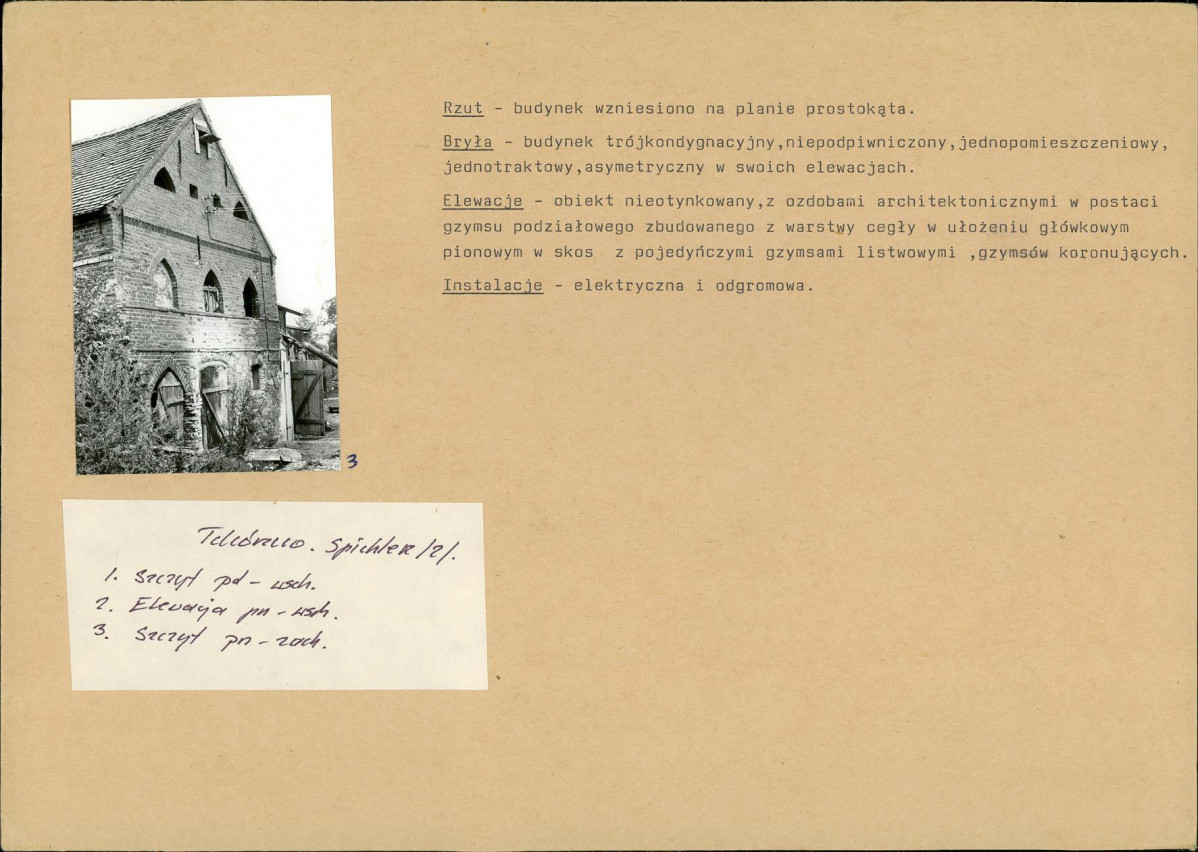 Rzut - budynek wzniesiono na planie prostokąta.
Bryła - budynek trójkondygnacyjny,niepodpiwniczony,jednopomieszczeniowy,
jednotraktowy,asymetryczny w swoich elewacjach.
Elewacje - obiekt nieotynkowany,z ozdobami architektonicznymi w postaci
gzymsu podziałowego zbudowanego z warstwy cegły w ułożeniu główkowym
pionowym w skos  z pojedyńczymi gzymsami listwowymi ,gzymsów koronujących.
Instalacje - elektryczna i odgromowa.
3
Tchórzno. Spichlerz /2/.
1. Szczyt pd - wsch.
2. Elewacja pn - wsch.
3. Szczyt pn - zach.